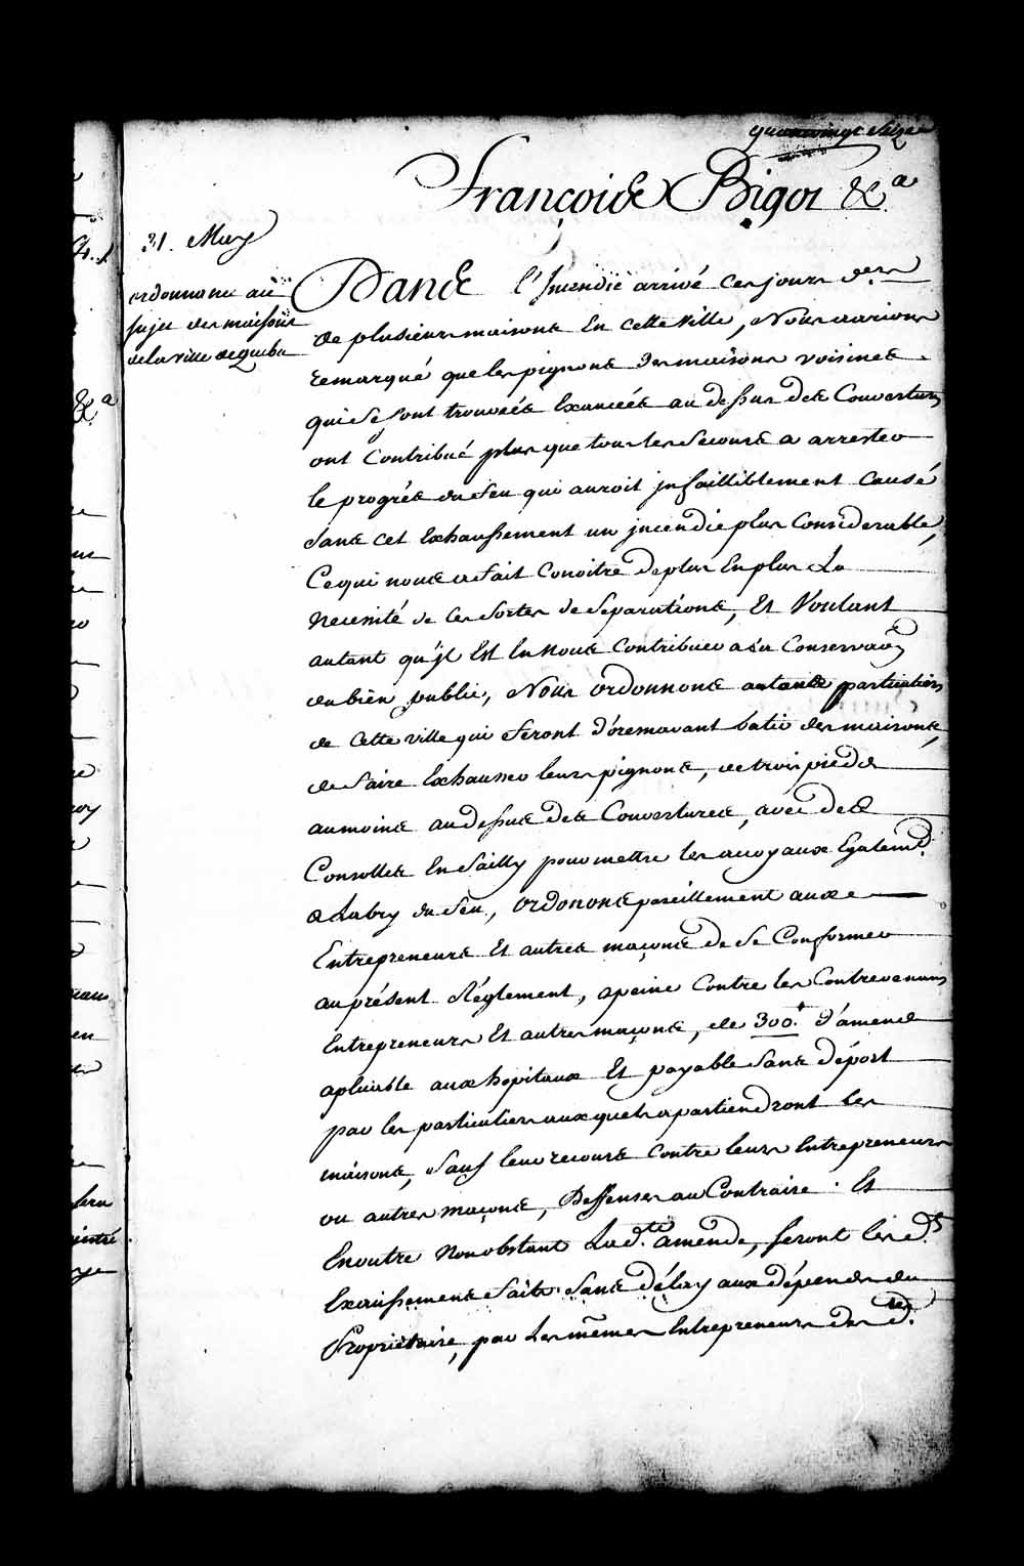 quatrevingt Seize
François Bigot &c.a
31. May
ordonnance au
sujet des maisons
de la ville de quebec
Dans l'Incendie arrivé ces jours d.ers
de plusieurs maisons En cette Ville, Nous aurions
remarqué que les pignons des maisons voisines
qui Se sont trouvéés Exaucéés au dessus des Couvertures
ont Contribué plus que tous les Secours a arrester
le progrés du feu qui auroit jnfailliblement Causé
sans cet Exhaussement un jncendie plus Considerable,
Ce qui nous a fait Conoitre de plus En plus La
Necessité de ces Sortes de Separations, Et Voulant
autant qu'jl Est En nous Contribuer a la Conservaōn
du bien public, Nous ordonnons a tous particuliers
de cette ville qui feront d'oresnavant batir des maisons,
de faire Exhausser leurs pignons, de trois pieds
au moins au dessus des Couvertures, avec des
Consolles En Sailly pour mettre les acoyaux Egalem.t
a Labry du feu, Ordonons pareillement aux
Entrepreneurs Et autres maçons de Se Conformer
au présent Réglement, a peine Contre les Contrevenans
Entrepreneurs Et autres maçons, de 300.# d'amende
aplicable aux hopitaux Et payable Sans déport
par les particuliers auxquels apartiendront les
maisons, Sauf leur recours Contre leurs Entrepreneurs
ou autres maçons, Deffenses au Contraire. Et
En outre Nonobstant La d.te amende, seront les d.s
Exaussemens faits Sans délay aux dépens du
Propriétaire, par Les mêmes Entrepreneurs des d.tes